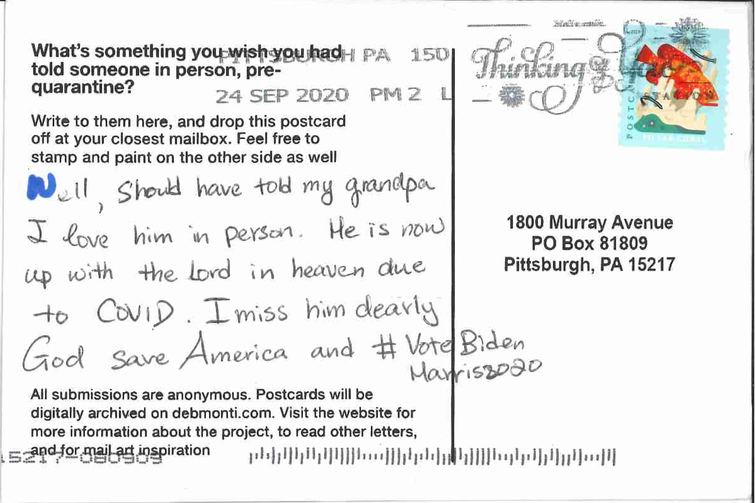 What's something you wish you had
told someone in person, pre-
quarantine?
PITTSBURGH PA 150
24 SEP 2020 PM 2 L
Thinking of You
POSTCARD
Write to them here, and drop this postcard
off at your closest mailbox. Feel free to
stamp and paint on the other side as well
Well, Should have told my grandpa
I love him in person. He is now
up with the Lord in heaven due
to COVID. I miss him dearly
God save America and # Vote Biden
Harris2020
1800 Murray Avenue
PO Box 81809
Pittsburgh, PA 15217
All submissions are anonymous. Postcards will be
digitally archived on debmonti.com. Visit the website for
more information about the project, to read other letters,
and for mail art inspiration
15217-080909